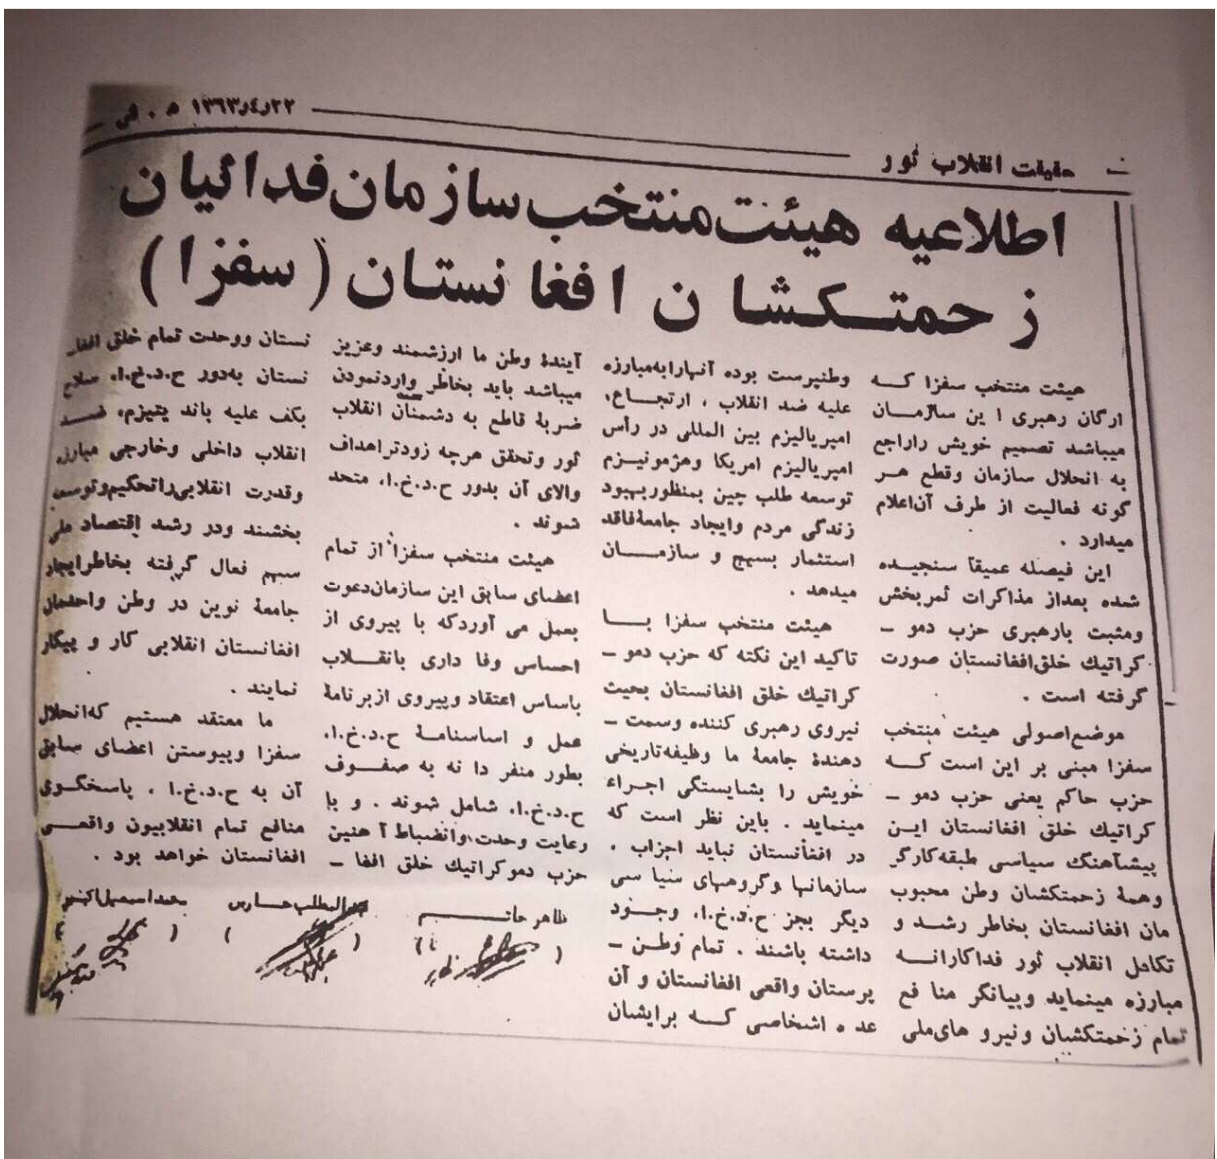 حقیقت انقلاب ثور
۲۲ر٤ر۱۳٦۳ ه . ش
اطلاعیه هیئت منتخب سازمان فدائیان
زحمتکشان افغانستان (سفزا)
هیئت منتخب سفزا که
ارگان رهبری این سازمان
میباشد تصمیم خویش راراجع
به انحلال سازمان وقطع هر
گونه فعالیت از طرف آن اعلام
میدارد .
این فیصله عمیقا سنجیده
شده بعداز مذاکرات ثمربخش
ومثبت بارهبری حزب دمو ــ
کراتیك خلق افغانستان صورت
گرفته است .
موضع اصولی هیئت منتخب
سفزا مبنی بر این است که
حزب حاکم یعنی حزب دمو ــ
کراتیك خلق افغانستان این
پیشآهنگ سیاسی طبقه کارگر
وهمۀ زحمتکشان وطن محبوب
مان افغانستان بخاطر رشد و
تکامل انقلاب ثور فداکارانه
مبارزه مینماید وبیانگر منا فع
تمام زحمتکشان ونیرو های ملی
وطنپرست بوده آنهارابه مبارزه
علیه ضد انقلاب ، ارتجاع،
امپریالیزم بین المللی در رأس
امپریالیزم امریکا وهژمونیزم
توسعه طلب چین بمنظوربهبود
زندگی مردم وایجاد جامعۀ فاقد
استثمار بسیج و سازمان
میدهد .
هیئت منتخب سفزا با
تاکید این نکته که حزب دمو ــ
کراتیك خلق افغانستان بحیث
نیروی رهبری کننده وسمت ــ
دهندۀ جامعۀ ما وظیفه تاریخی
خویش را بشایستگی اجراء
مینماید . باین نظر است که
در افغانستان نباید احزاب ،
سازمانها وگروههای سیا سی
دیگر بجز ح.د.خ.ا. وجود
داشته باشند . تمام وطن ــ
پرستان واقعی افغانستان و آن
عد ه اشخاصی که برایشان
آیندۀ وطن ما ارزشمند وعزیز
میباشد باید بخاطر واردنمودن
ضربۀ قاطع به دشمنان انقلاب
ثور وتحقق هرچه زودتراهداف
والای آن بدور ح.د.خ.ا. متحد
شوند .
هیئت منتخب سفزا از تمام
اعضای سابق این سازمان دعوت
بعمل می آوردکه با پیروی از
احساس وفا داری بانقلاب
باساس اعتقاد وپیروی ازبرنامۀ
عمل و اساسنامۀ ح.د.خ.ا.
بطور منفر دا نه به صفوف
ح.د.خ.ا. شامل شوند . و با
رعایت وحدت وانضباط آ هنین
حزب دموکراتیك خلق افغا ــ
نستان ووحدت تمام خلق افغا ــ
نستان بدور ح.د.خ.ا. سلاح
بکف علیه باند یتیزم، ضد
انقلاب داخلی وخارجی مبارزه
وقدرت انقلابی راتحکیم وتوسعه
بخشند ودر رشد اقتصاد ملی
سهم فعال گرفته بخاطرایجاد
جامعۀ نوین در وطن واحدمان
افغانستان انقلابی کار و پیکار
نمایند .
ما معتقد هستیم که انحلال
سفزا وپیوستن اعضای سابق
آن به ح.د.خ.ا . پاسخگوی
منافع تمام انقلابیون واقعی
افغانستان خواهد بود .
ظاهر حاتم
عبدالمطلب حارس
محمداسمعیل اکبر